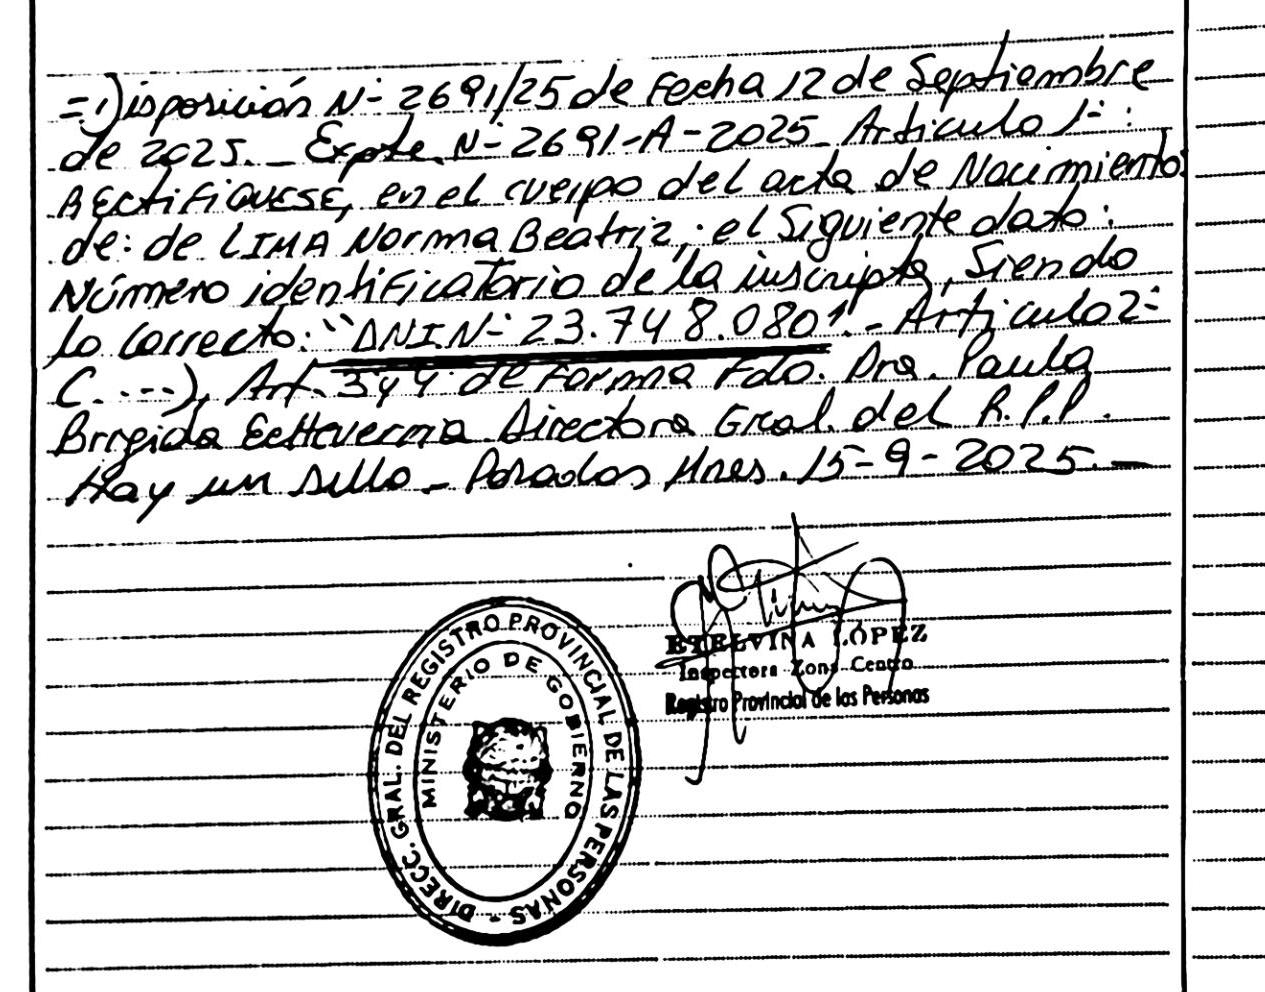 =Disposición Nº 2691/25 de Fecha 12 de Septiembre
de 2025._ Expte. Nº 2691-A-2025_ Articulo 1º:
RECtiFiQUESE, en el cuerpo del acta de Nacimiento
de: de LIMA Norma Beatriz; el Siguiente dato:
Número identificatorio de la inscripta, Siendo
lo correcto: "DNI.Nº 23.748.080". Articulo 2º
(....), Art. 3 y 4 de Forma Fdo. Dra. Paula
Brigida Echeverria Directora Gral. del R.P.P.
Hay un sello _ Posadas Mnes. 15-9-2025.—
ETELVINA LÓPEZ
Inspectora Zona Centro
Registro Provincial de las Personas
DIRECC. GRAL. DEL REGISTRO PROVINCIAL DE LAS PERSONAS -
MINISTERIO DE GOBIERNO